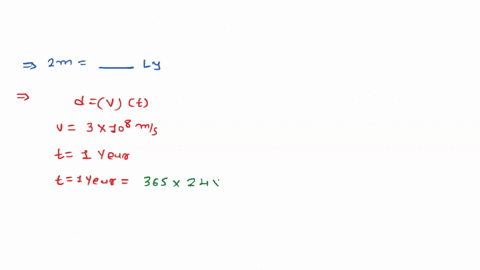 ⇒ 2m = ___ Ly
⇒ d = (V) (t)
V = 3 × 10⁸ m/s
t = 1 Year
t = 1 Year = 365 × 24 \